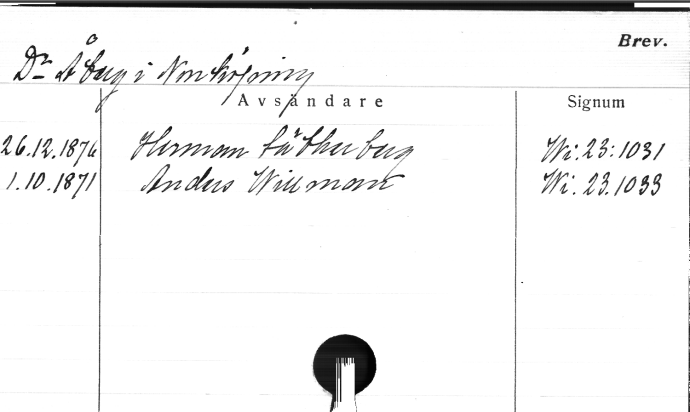 Brev.
Dr Åberg i Norrköping
Avsändare Signum
26.12.1876 Herman Sätherberg Wi. 23:1031
1.10.1871 Anders Willman Wi. 23.1033